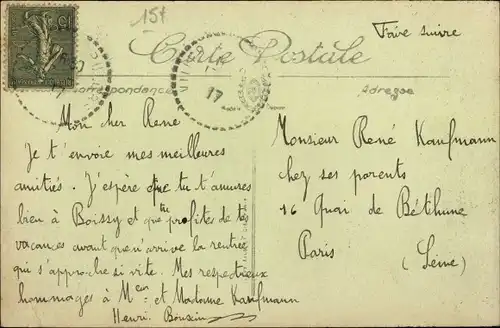 15f
Faire suivre
Carte Postale
Correspondance
Adresse
17
Mon cher René
Je t'envoie mes meilleures
amitiés. J'espère que tu t'amuses
bien à Boissy et que tu profites de tes
vacances avant que n'arrive la rentrée
qui s'approche si vite. Mes respectueux
hommages à Meur et Madame Kaufmann
Henri
Monsieur René Kaufmann
chez ses parents
16 Quai de Béthune
Paris
(Seine)